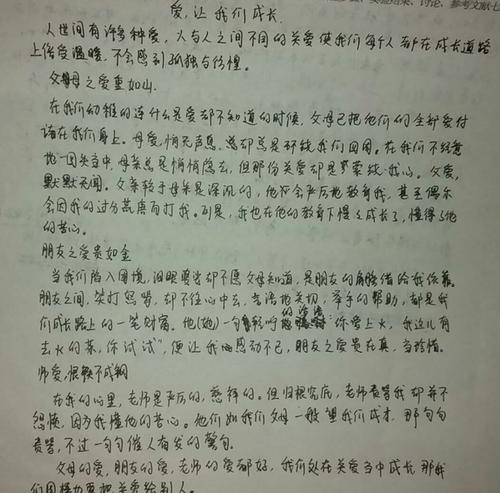 实验结果、讨论、参考文献七
爱,让我们成长.
人世间有许多种爱,人与人之间不同的关爱使我们每个人都在成长道路
上倍受温暖,不会感到孤独与彷徨.
父母之爱重如山.
在我们幼稚的连什么是爱都不知道的时候,父母已把他们的全部爱付
诸在我们身上。母爱,悄无声息,总是环绕我们四周,在我们不经意
地一回头当中,母亲总是悄悄隐去,但那份关爱却是萦绕我心。父爱,
默默无闻。父亲较于母亲是深沉的,他会严厉地教育我,甚至偶尔
会因我的过分而打我。可是,我也在他的教育下慢慢成长了,懂得了他
的苦心。
朋友之爱贵如金
当我们陷入困境,泪眼却不愿父母知道,是朋友的肩膀借给我依靠。
朋友之间,笑打怒骂,却不往心中去,言语地关切,举手的帮助,都是我
们成长路上的一笔财富。他(她)一句的你爱上火,我这儿有
去火的茶,你试试",便让我感动不已,朋友之爱贵在真,当珍惜.
师爱,恨铁不成钢
在我的心里,老师是严厉的,慈祥的。但归根究底,老师责骂我却并不
怨恨,因为我懂他的苦心。他们如我们父母一般望我们成才,那句句
责骂,不过一句句催人奋发的警句.
父母的爱,朋友的爱,老师的爱都好,我们处在关爱当中成长,那我
们同样也要把关爱给别人。